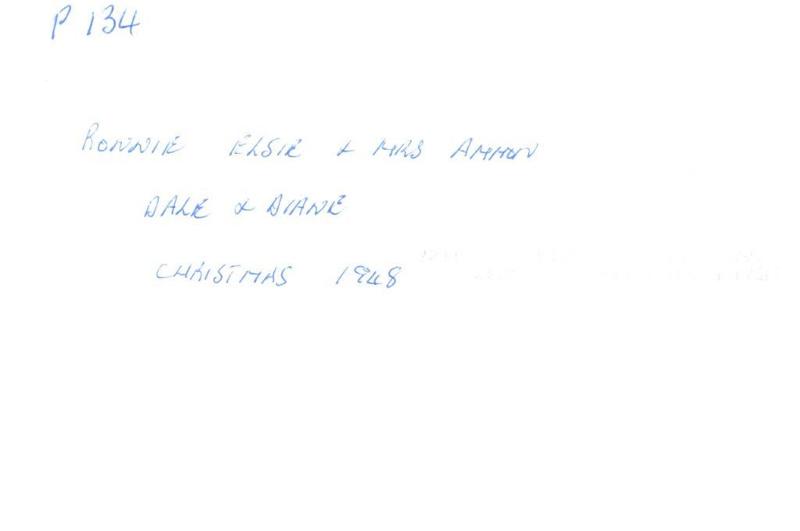 P 134
RONNIE ELSIE & MRS AMMON
DALE & DIANE
CHRISTMAS 1948